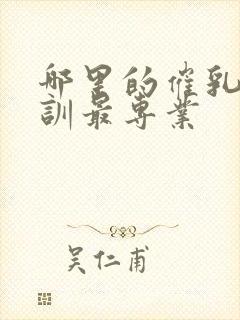 哪里的催乳
訓最專業
吴仁甫